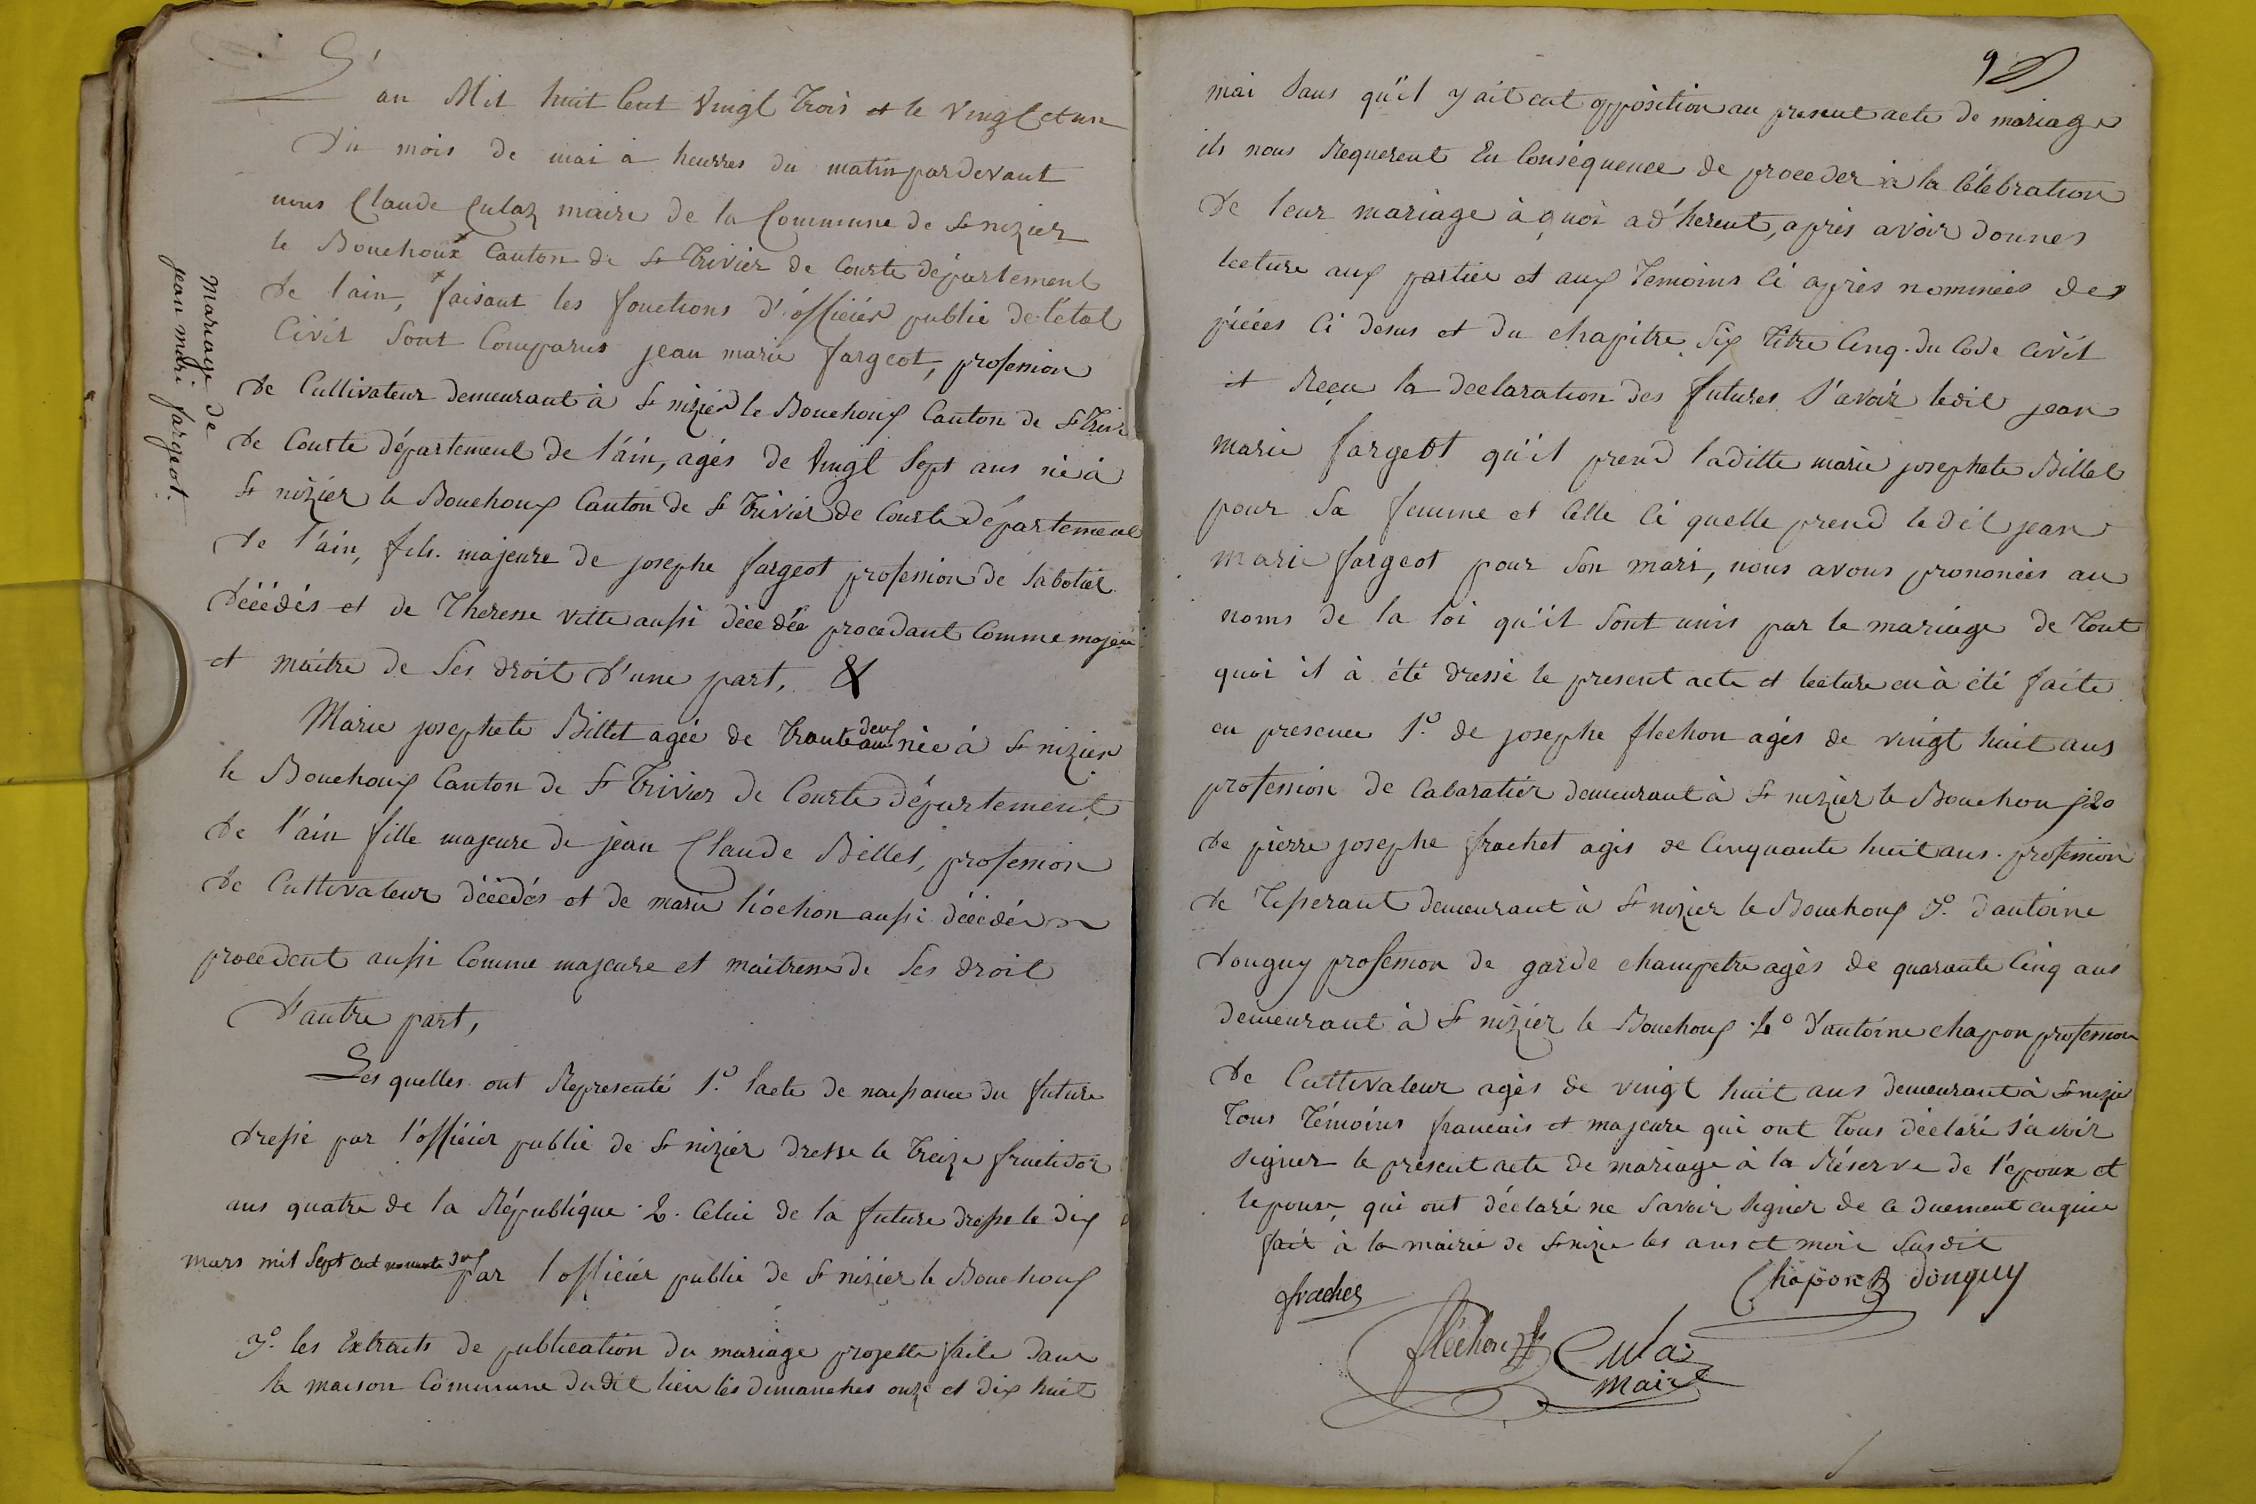 L'an Mil huit Cent Vingt Trois et le Vingt et un
Du mois de mai à heurres du matin pardevant
nous Claude Culaz maire de la Commune de St nizier
le Bouchoux Canton de St Trivier de Courte département
de l'ain, faisant les fonctions d'officier public de l'etat
Civil Sont Comparus jean marie fargeot, profession
de Cultivateur demeurant à St nizier le Bouchoux Canton de St Trivier
de Courte département de l'ain, agés de Vingt Sept ans né à
St nizier le Bouchoux Canton de St Trivier de Courte département
de l'ain, fils majeure de josephe fargeot profession de Sabotier
décédés et de Theresse vitte aussi décedée procedant Comme majeur
et maitre de Ses droit d'une part, &
Marie josephete Billet agée de Trante deux ans née à St nizier
le Bouchoux Canton de St Trivier de Courte département
de l'ain fille majeure de jean Claude Billet, profession
de Cultivateur décédés et de marie liochon aussi décédée
procedent aussi Comme majeure et maitresse de Ses droit
d'autre part,
Les quelles ont Representé 1.º l'acte de naissance du future
dressé par l'officier public de St nizier dressé le Treize fructidor
ans quatre de la République 2. Celui de la future dresse le dix
mars mil Sept cent nonante deux par l'officier public de St nizier le Bouchoux
3º. les Extraits de publication du mariage projetté faite dans
la maison Commune dudit lieu les dimanches onze et dix huit
Mariage de
jean marie fargeot
9
mai Sans qu'il y ait eut opposition au present acte de mariage
ils nous Requerent En Conséquence de proceder à la Célébration
de leur mariage à quoi ad'herent, après avoir donnes
lecture aux partier et aux Temoins Ci après nommées des
pièces Ci desus et du chapitre Six Titre Cinq. du Code Civil
et Reçu la declaration des futures S'avoir ledit jean
marie fargeot qu'il prend laditte marie josephete Billet
pour Sa femme et Celle Ci quelle prend ledit jean
marie fargeot pour Son mari, nous avons prononcés au
noms de la loi qu'il Sont unis par le mariage de Tout
quoi il à été dressé le present acte et lecture en à été faite
en presence 1.º de josephe flechon agés de vingt huit ans
profession de Cabaratier demeurant à St nizier le Bouchoux 2o
de pierre josephe frachet agés de Cinquante huit ans. profession
de Tisserant demeurant à St nizier le Bouchoux 3º. d'antoine
donguy profession de garde champetre agés de quarante Cinq ans
demeurant à St nizier le Bouchoux 4º d'antoine chapon profession
de Cultivateur agés de vingt huit ans demeurant à St nizier
Tous Témoins francais et majeure qui ont Tous déclaré S'avoir
Signer le présent acte de mariage à la Réserve de l'epoux et
lepouse, qui ont déclaré ne Savoir Signer de ce duement enquis
fait à la mairie de St nizier les ans et mois Susdit
frachet Chapon donguy
fléchon Culaz
Maire